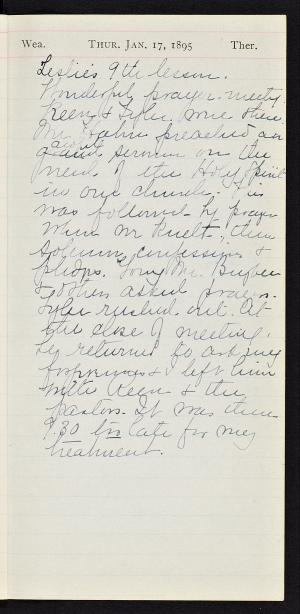 Wea. THUR. JAN. 17, 1895 Ther.
Leslie's 9th lesson.
Wonderful prayer-meeting
Keen & Tyler were there.
Mr. Hahn preached an
sermon on the
need of the Holy Spirit
in our church. This
was followed by prayer
when we knelt, then
solemn confessions &
pledges. Young Mr.
& others asked prayers.
Tyler rushed out. At
the close of meeting.
he returned to ask my
forgiveness & I left him
with Keen & the
pastor. It was then
9.30 too late for my
treatment.